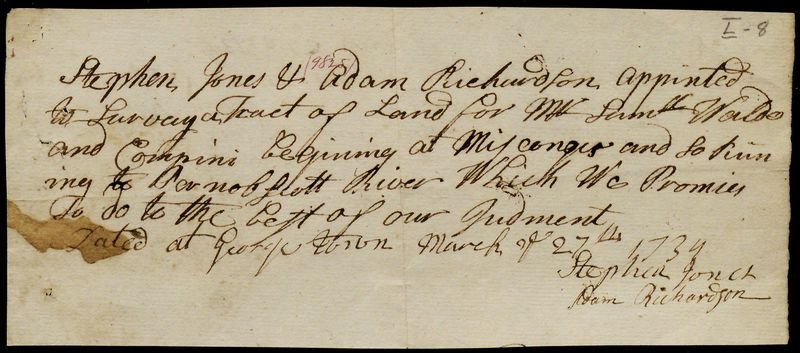 I-8
(9825)
Stephen Jones & Adam Richardson appinted
to Survay a Tract of Land for Mr Samll Waldo
and Compini begining at Misconges and so Run
ing to Pernobscott River Which We Promies
To do to the best of our Judment
Dated at George Town March ye 27th 1739
Stephen Jones
Adam Richardson